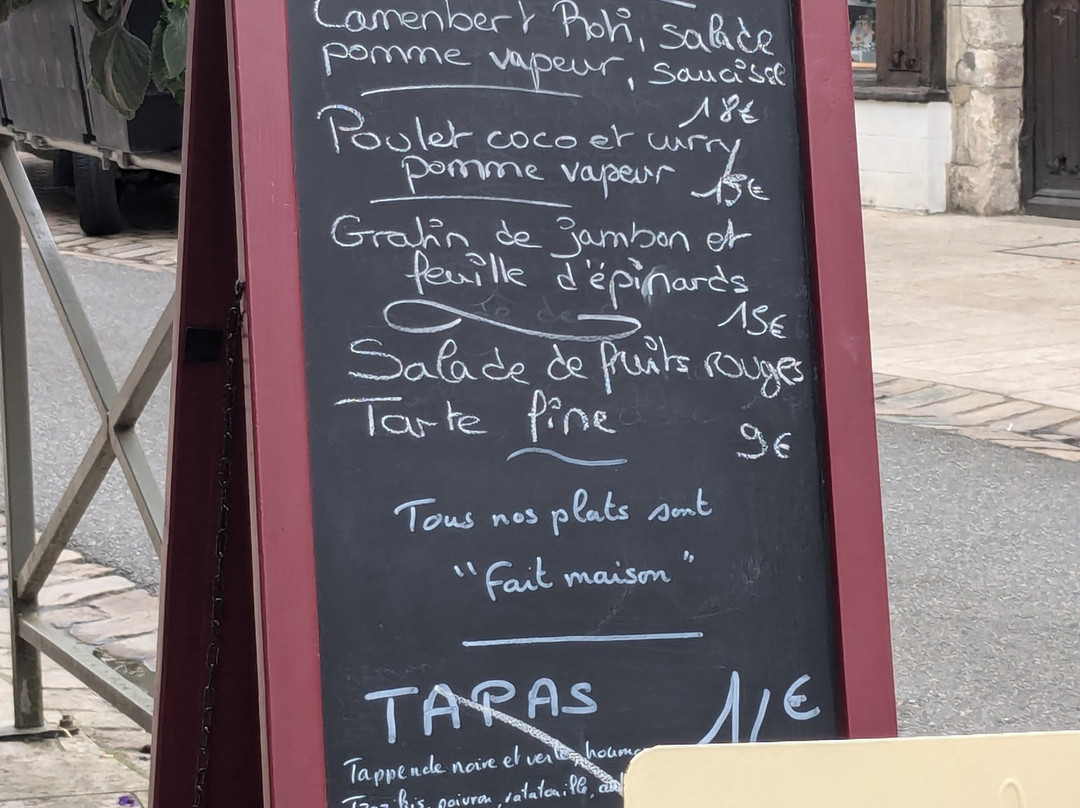 Camembert Roti, salade
pomme vapeur, saucisse
18€
Poulet coco et curry
pomme vapeur 15€
Gratin de jambon et
feuille d'épinards
15€
Salade de fruits rouges
Tarte fine
9€
Tous nos plats sont
"fait maison"
TAPAS 11€
Tappenade noire et verte, houm
poivron, ratatouille,